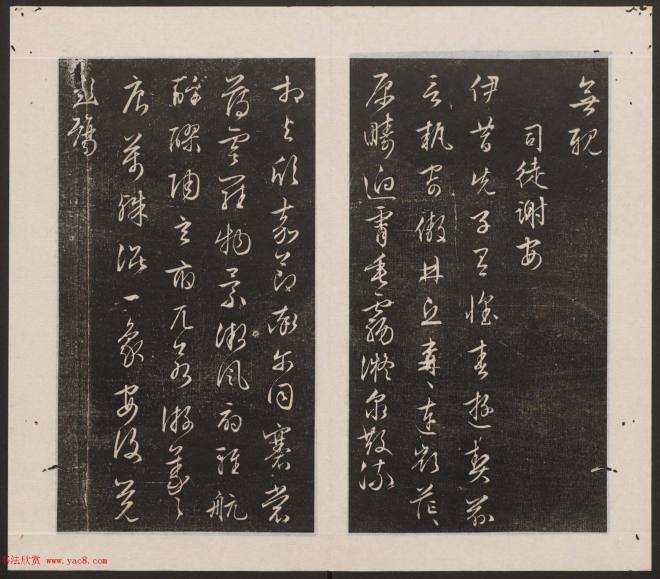 無親
司徒謝安
伊昔先子有懷春遊契茲
言執寄傲林丘森〻連嶺茫〻
原疇迥霄垂霧凝泉散流
相與欣嘉節率爾同褰裳
薄雲羅物景微風翼輕航
醇醪陶玄府兀若遊羲
唐萬殊混一象安復覺
彭殤
书法欣赏 www.yac8.com